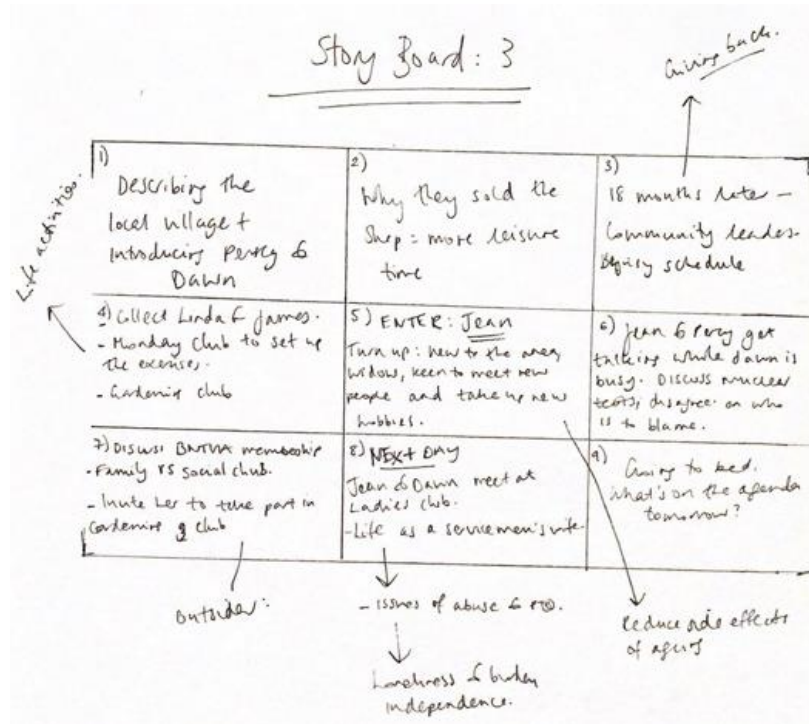 Story Board: 3
Giving back.
Life activities.
1)
Describing the
local village +
Introducing Percy &
Dawn
2)
Why they sold the
Shop = more leisure
time
3)
18 months later –
Community leader-
Busy schedule
4) Collect Linda & James.
- Monday club to set up
the exercises.
- Gardening club
5) ENTER: Jean
Turn up: new to the area,
widow, keen to meet new
people and take up new
hobbies.
6) Jean & Percy get
talking while dawn is
busy. Discuss nuclear
tests, disagree on who
is to blame.
7) Discuss BNTVA membership
- Family vs social club.
- Invite her to take part in
Gardening club
8) NEXT DAY
Jean & Dawn meet at
Ladies club.
- Life as a servicemen's wife.
9)
Going to bed.
What's on the agenda
tomorrow?
outsider:
- Issues of abuse &
Loneliness &
independence.
Reduce side effects
of ageing